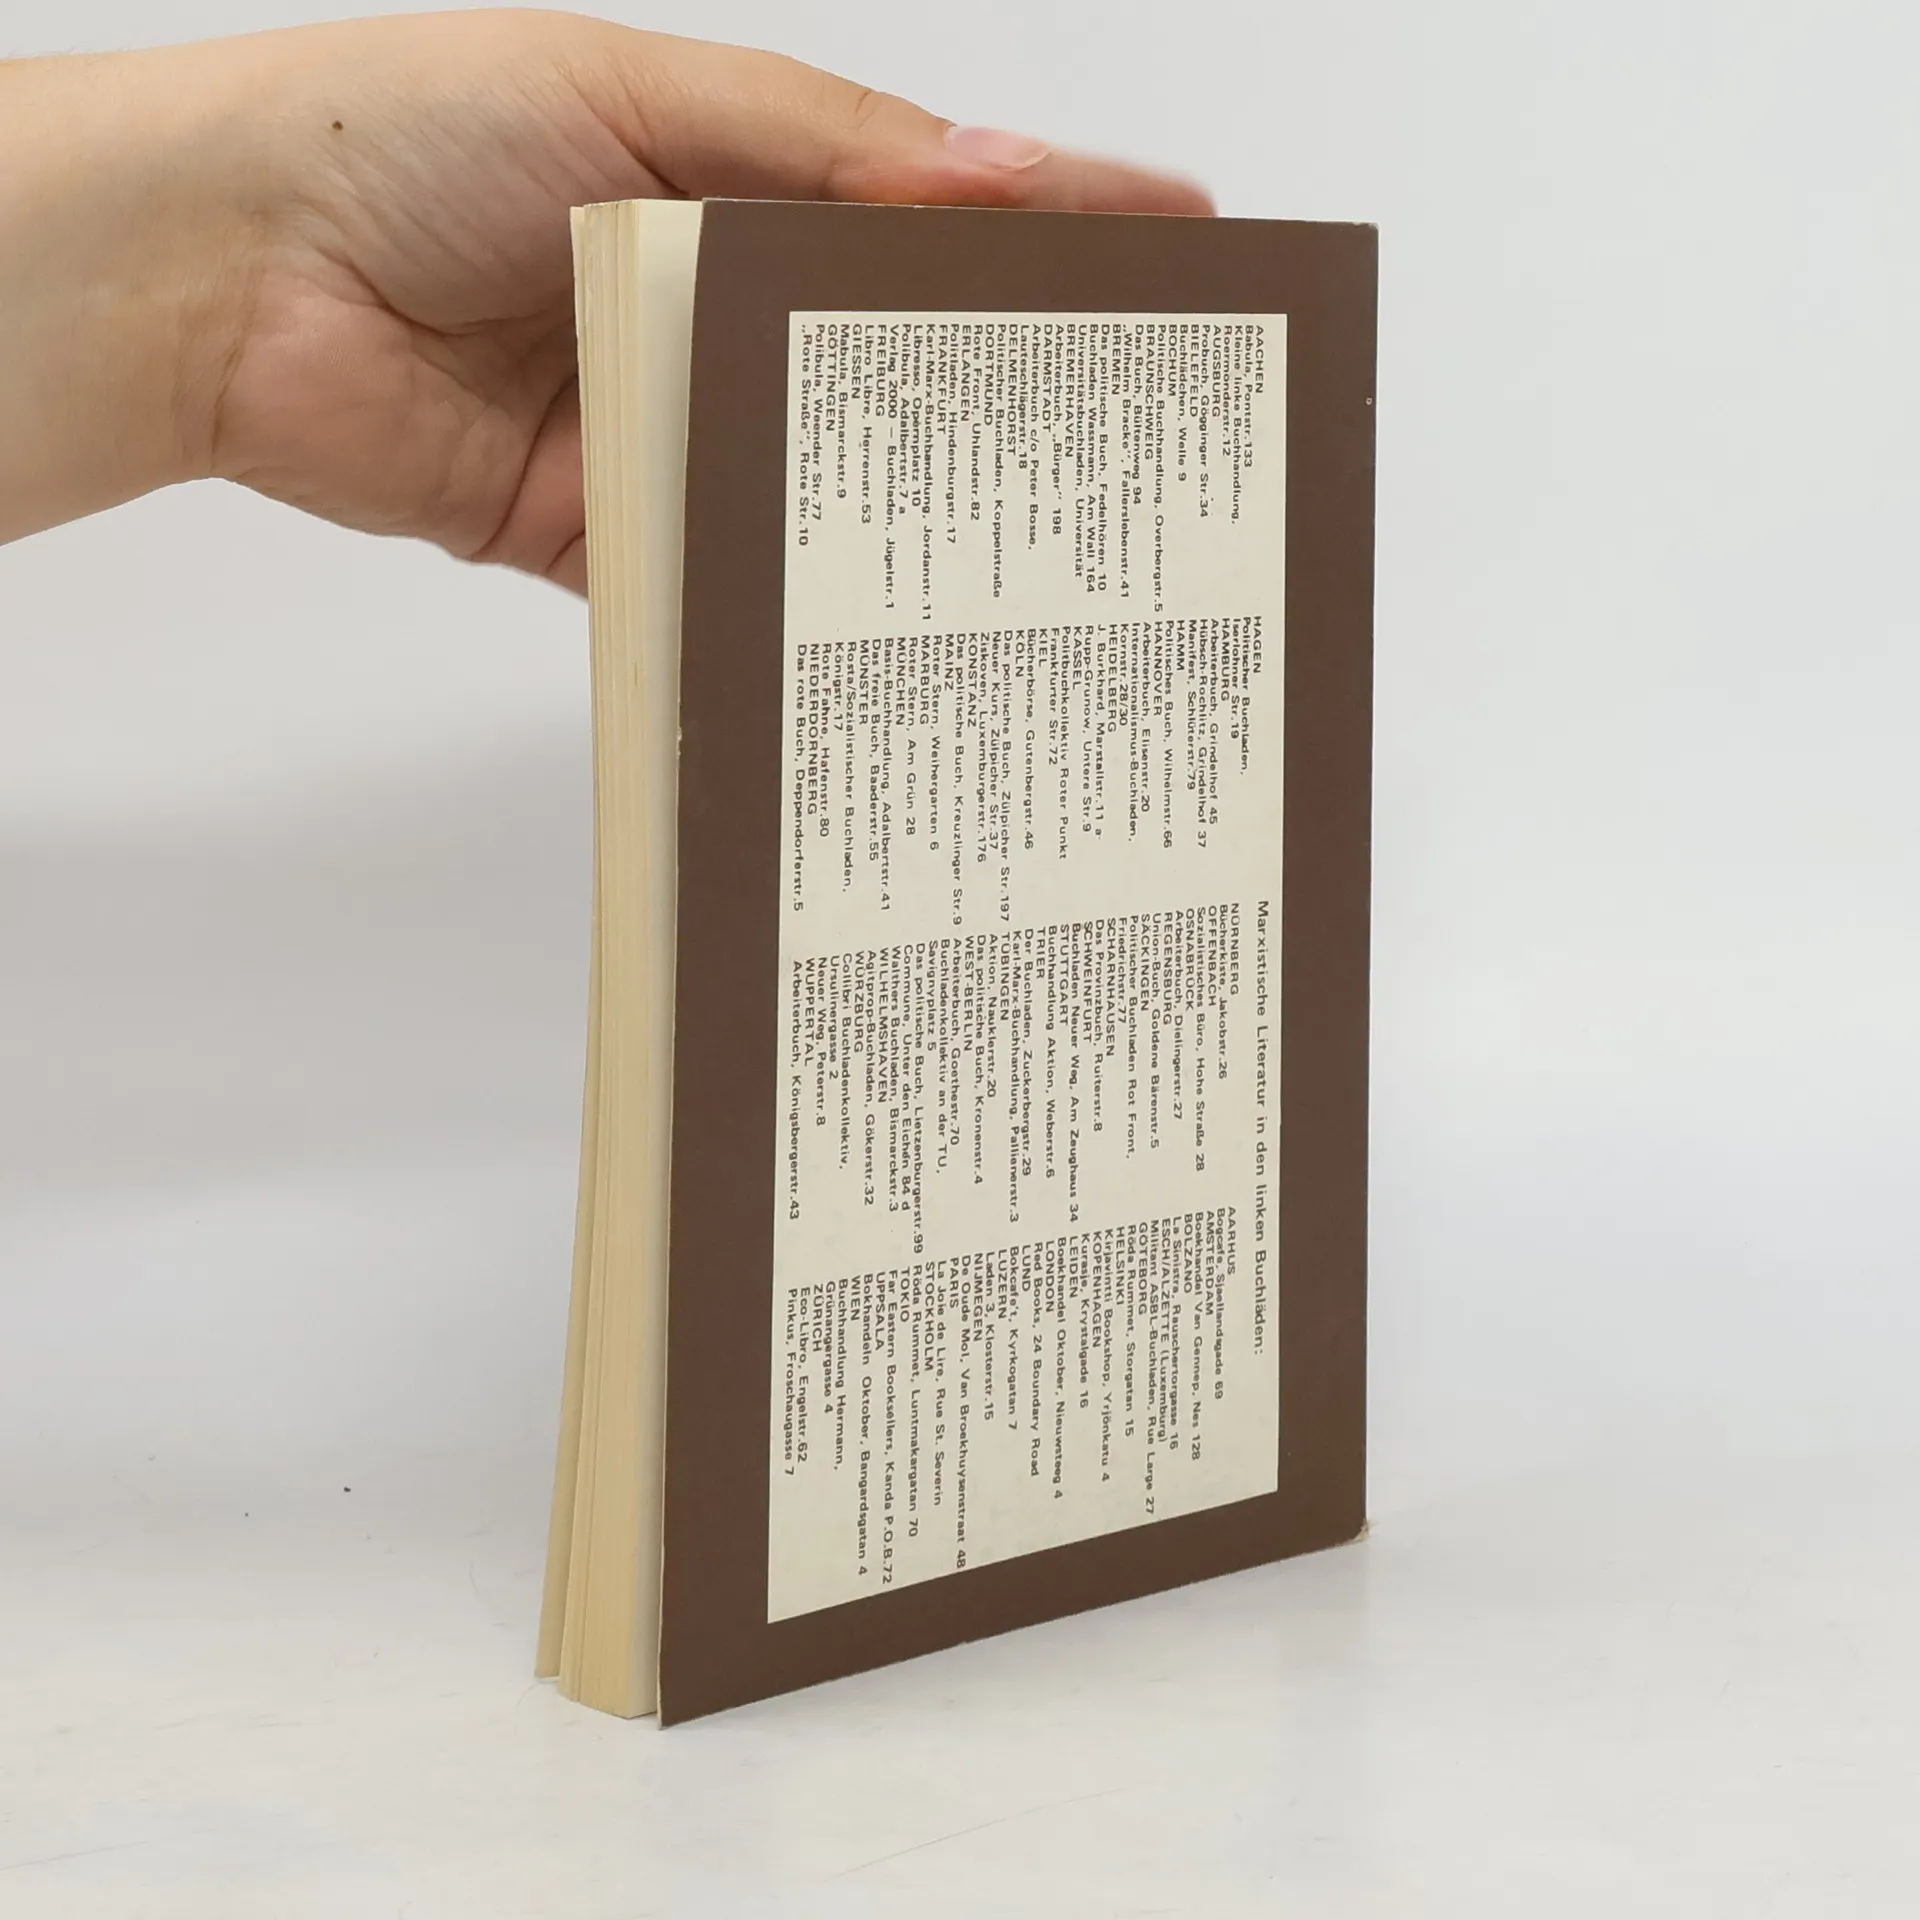 Marxistische Literatur in den linken Buchläden:
AACHEN
Babula, Pontstr.133
Kleine linke Buchhandlung,
Roermonderstr.12
AUGSBURG
Probuch, Gögginger Str.34
BIELEFELD
Buchlädchen, Welle 9
BOCHUM
Politische Buchhandlung, Overbergstr.5
BRAUNSCHWEIG
Das Buch, Bültenweg 94
„Wilhelm Bracke”, Fallerslebenstr.41
BREMEN
Das politische Buch, Fedelhören 10
Buchladen Wassmann, Am Wall 164
Universitätsbuchladen, Universität
BREMERHAVEN
Arbeiterbuch, „Bürger” 198
DARMSTADT
Arbeiterbuch c/o Peter Bosse,
Lauteschlägerstr.18
DELMENHORST
Politischer Buchladen, Koppelstraße
DORTMUND
Rote Front, Uhlandstr.82
ERLANGEN
Politladen, Hindenburgstr.17
FRANKFURT
Karl-Marx-Buchhandlung, Jordanstr.11
Libresso, Opernplatz 10
Polibula, Adalbertstr.7 a
Verlag 2000 — Buchladen, Jügelstr.1
FREIBURG
Libro Libre, Herrenstr.53
GIESSEN
Mabula, Bismarckstr.9
GÖTTINGEN
Polibula, Weender Str.77
„Rote Straße”, Rote Str.10
HAGEN
Politischer Buchladen,
Iserlohner Str.19
HAMBURG
Arbeiterbuch, Grindelhof 45
Hübsch-Rochlitz, Grindelhof 37
Manifest, Schlüterstr.79
HAMM
Politisches Buch, Wilhelmstr.66
HANNOVER
Arbeiterbuch, Elisenstr.20
Internationalismus-Buchladen,
Kornstr.28/30
HEIDELBERG
J. Burkhard, Marstallstr.11 a
Rupp-Grunow, Untere Str.9
KASSEL
Politbuchkollektiv Roter Punkt
Frankfurter Str.72
KIEL
Bücherbörse, Gutenbergstr.46
KÖLN
Das politische Buch, Zülpicher Str.197
Neuer Kurs, Zülpicher Str.37
Ziskoven, Luxemburgerstr.176
KONSTANZ
Das politische Buch, Kreuzlinger Str.9
MAINZ
Roter Stern, Weihergarten 6
MARBURG
Roter Stern, Am Grün 28
MÜNCHEN
Basis-Buchhandlung, Adalbertstr.41
Das freie Buch, Baaderstr.55
MÜNSTER
Rosta/Sozialistischer Buchladen,
Königstr.17
Rote Fahne, Hafenstr.80
NIEDERDORNBERG
Das rote Buch, Deppendorferstr.5
NÜRNBERG
Bücherkiste, Jakobstr.26
OFFENBACH
Sozialistisches Büro, Hohe Straße 28
OSNABRÜCK
Arbeiterbuch, Dielingerstr.27
REGENSBURG
Union-Buch, Goldene Bärenstr.5
SÄCKINGEN
Politischer Buchladen Rot Front,
Friedrichstr.77
SCHARNHAUSEN
Das Provinzbuch, Ruiterstr.8
SCHWEINFURT
Buchladen Neuer Weg, Am Zeughaus 34
STUTTGART
Buchhandlung Aktion, Weberstr.6
TRIER
Der Buchladen, Zuckerbergstr.29
Karl-Marx-Buchhandlung, Pallienerstr.3
TÜBINGEN
Aktion, Nauklerstr.20
Das politische Buch, Kronenstr.4
WEST-BERLIN
Arbeiterbuch, Goethestr.70
Buchladenkollektiv an der TU,
Savignyplatz 5
Das politische Buch, Lietzenburgerstr.99
Commune, Unter den Eichen 84 d
Walthers Buchladen, Bismarckstr.3
WILHELMSHAVEN
Agitprop-Buchladen, Gökerstr.32
WÜRZBURG
Collibri Buchladenkollektiv,
Ursulinergasse 2
Neuer Weg, Peterstr.8
WUPPERTAL
Arbeiterbuch, Königsbergerstr.43
AARHUS
Bogcafe, Sjaellandsgade 69
AMSTERDAM
Boekhandel Van Gennep, Nes 128
BOLZANO
La Sinistra, Rauschertorgasse 16
ESCH/ALZETTE (Luxemburg)
Militant ASBL-Buchladen, Rue Large 27
GÖTEBORG
Röda Rummet, Storgatan 15
HELSINKI
Kirjavintti Bookshop, Yrjönkatu 4
KOPENHAGEN
Kurasje, Krystalgade 16
LEIDEN
Boekhandel Oktober, Nieuwsteeg 4
LONDON
Red Books, 24 Boundary Road
LUND
Bokcafe't, Kyrkogatan 7
LUZERN
Laden 3, Klosterstr.15
NIJMEGEN
De Oude Mol, Van Broekhuysenstraat 48
PARIS
La Joie de Lire, Rue St. Severin
STOCKHOLM
Röda Rummet, Luntmakargatan 70
TOKIO
Far Eastern Booksellers, Kanda P.O.B.72
UPPSALA
Bokhandeln Oktober, Bangardsgatan 4
WIEN
Buchhandlung Hermann,
Grünangergasse 4
ZÜRICH
Eco-Libro, Engelstr.62
Pinkus, Froschaugasse 7